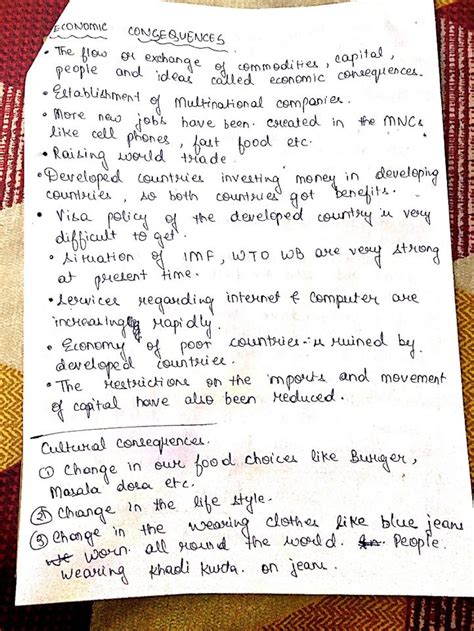 ECONOMIC CONSEQUENCES.
• The flow or exchange of commodities, capital,
people and ideas called economic consequences.
• Establishment of Multinational companies.
• More new jobs have been created in the MNCs
like cell phones, fast food etc.
• Raising world trade.
• Developed countries investing money in developing
countries, so both countries got benefits.
• Visa policy of the developed country is very
difficult to get.
• Situation of IMF, WTO WB are very strong
at present time.
• Services regarding internet & computer are
increasingly rapidly.
• Economy of poor countries is ruined by
developed countries.
• The restrictions on the imports and movement
of capital have also been reduced.
Cultural consequences.
① Change in our food choices like Burger,
Masala dosa etc.
② Change in the life style.
③ Change in the wearing clothes like blue jeans
worn all round the world. People
wearing Khadi Kurta on jeans.